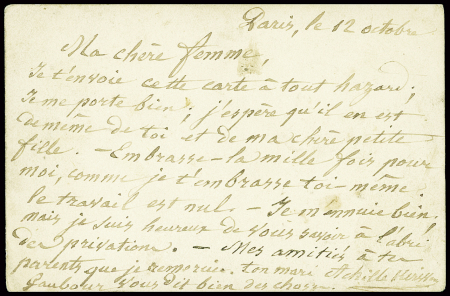 Paris, le 12 octobre
Ma chère femme,
Je t'envoie cette carte à tout hazard;
Je me porte bien; j'espère qu'il en est
de même de toi et de ma chère petite
fille. - Embrasse-la mille fois pour
moi, comme je t'embrasse toi-même.
le travail est nul. - Je m'ennuie bien,
mais je suis heureux de vous savoir à l'abri
des privations. - Mes amitiés à tes
parents que je remercie. ton mari Achille
vous dit bien des choses.